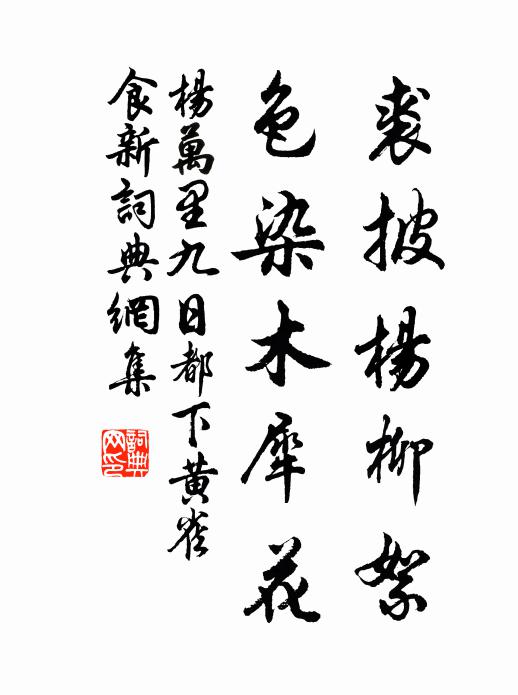 裘披楊柳絮
色染木犀花
楊萬里九日都下黃雀
食新詞典網集
詞典
网印